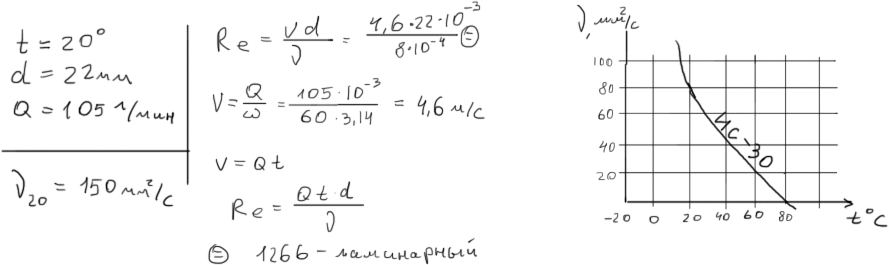 t = 20°
d = 22мм
Q = 105 л/мин
ν₂₀ = 150 мм²/с
Re = νd/ν = 4,6·22·10⁻³/8·10⁻⁴ ⊜
V = Q/ω = 105·10⁻³/60·3,14 = 4,6 м/с
v = Qt
Re = Qt·d/ν
⊜ 1266 - ламинарный
ν, мм²/с
100
80
60
40
20
-20 0 20 40 60 80
t°C
ИС-30